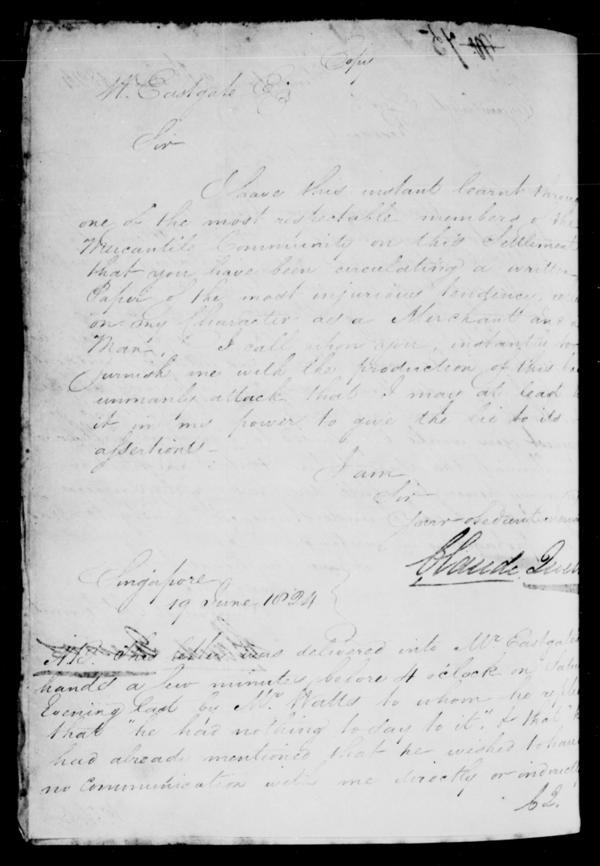 Copy
W. Eastgate Esq
Sir
I have this instant learnt
one of the most respectable members of the
Mercantile Community on this Settlement
that you have been circulating a written
Paper of the most injurious tendency
on my Character as a Merchant and
Man, I call upon you, instantly to
furnish me with the production of this
unmanly attack that I may at least
it in my power to give the lie to its
assertions
I am
Sir
Your obedient
Claude
Singapore
19 June 1824
NB. This letter was delivered into Mr Eastgate's
hands a few minutes before 4 o'clock on
Evening last by Mr Watts to whom he
that "he had nothing to day to it." & that
had already mentioned that he wished to have
no communication with me directly or
C2.